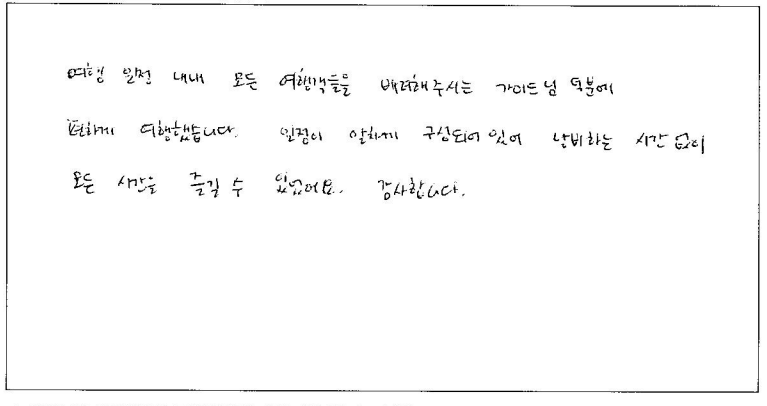 여행 일정 내내 모든 여행객들을 배려해주시는 가이드님 덕분에
편하게 여행했습니다. 일정이 알차게 구성되어 있어 낭비하는 시간 없이
모든 시간을 즐길 수 있었어요. 감사합니다.